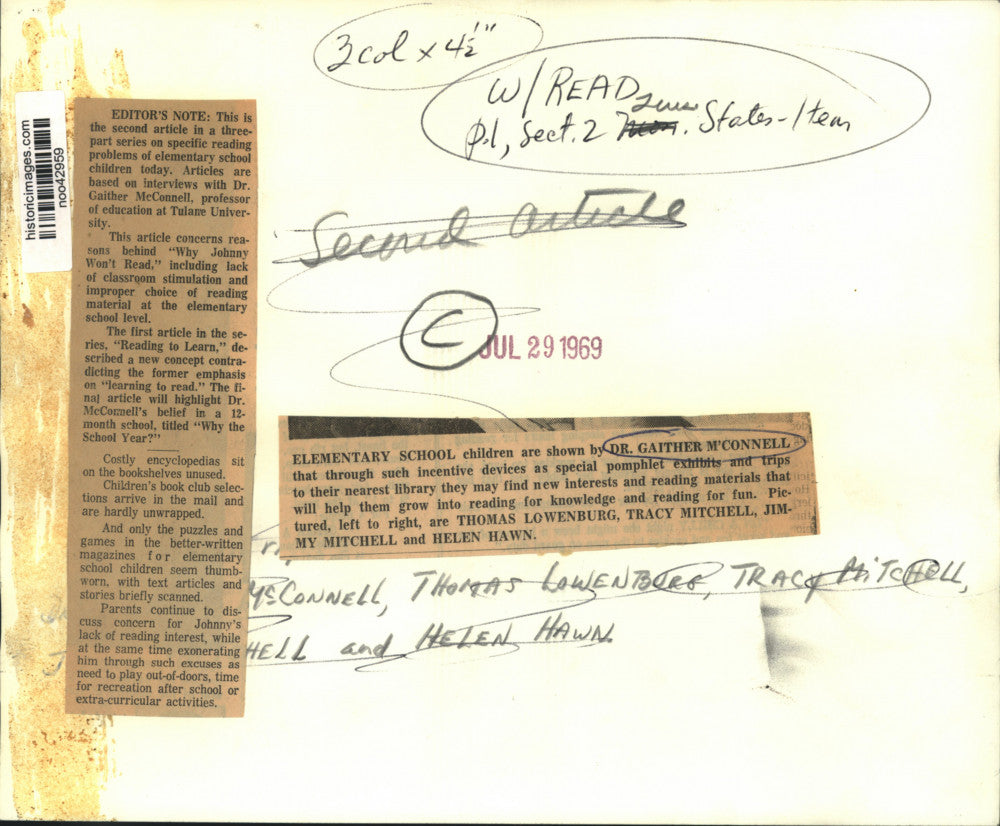 3 col x 4½"
W/READ
p.1, Sect. 2 States-Item
historicimages.com
noo42959
EDITOR'S NOTE: This is
the second article in a three-
part series on specific reading
problems of elementary school
children today. Articles are
based on interviews with Dr.
Gaither McConnell, professor
of education at Tulane Univer-
sity.
This article concerns rea-
sons behind "Why Johnny
Won't Read," including lack
of classroom stimulation and
improper choice of reading
material at the elementary
school level.
The first article in the se-
ries, "Reading to Learn," de-
scribed a new concept contra-
dicting the former emphasis
on "learning to read." The fi-
nal article will highlight Dr.
McConnell's belief in a 12-
month school, titled "Why the
School Year?"
Costly encyclopedias sit
on the bookshelves unused.
Children's book club selec-
tions arrive in the mail and
are hardly unwrapped.
And only the puzzles and
games in the better-written
magazines for elementary
school children seem thumb-
worn, with text articles and
stories briefly scanned.
Parents continue to dis-
cuss concern for Johnny's
lack of reading interest, while
at the same time exonerating
him through such excuses as
need to play out-of-doors, time
for recreation after school or
extra-curricular activities.
Second article
C
JUL 29 1969
ELEMENTARY SCHOOL children are shown by DR. GAITHER M'CONNELL
that through such incentive devices as special pomphlet exhibits and trips
to their nearest library they may find new interests and reading materials that
will help them grow into reading for knowledge and reading for fun. Pic-
tured, left to right, are THOMAS LOWENBURG, TRACY MITCHELL, JIM-
MY MITCHELL and HELEN HAWN.
McCONNELL, THOMAS LOWENBURG, TRACY MITCHELL,
HELL and HELEN HAWN